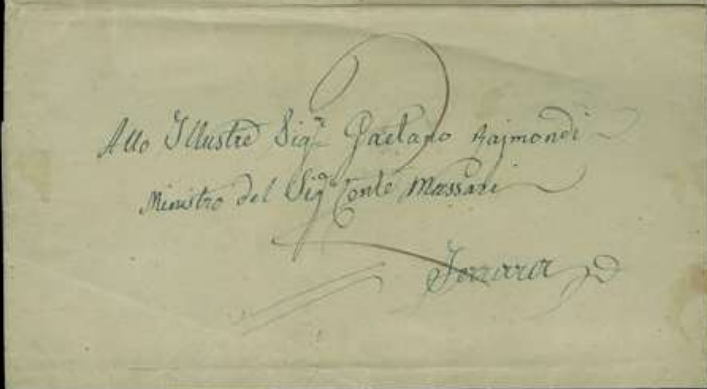 Allo Illustre Sig.re Gaetano Rajmondi
Ministro del Sig.r Conte Massari
Ferrara
2